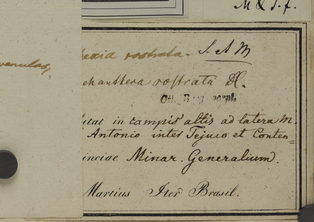 M & S. f.
venulas,
axia rostrata. S. A M
chanthera rostrata
itat in campis altis ad latera M.
Antonio inter Tejuco et Conten=
inciae Minar. Generalium.
Martius Iter Brasil.